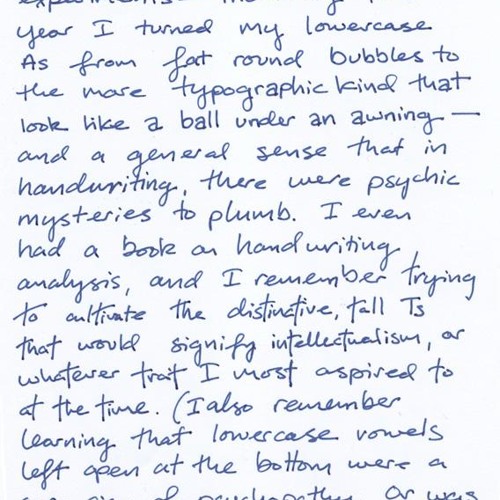 year I turned my lowercase
As from fat round bubbles to
the more typographic kind that
look like a ball under an awning —
and a general sense that in
handwriting, there were psychic
mysteries to plumb. I even
had a book on handwriting
analysis, and I remember trying
to cultivate the distinctive, tall Ts
that would signify intellectualism, or
whatever trait I most aspired to
at the time. (I also remember
learning that lowercase vowels
left open at the bottom were a
of psychopathy. Or was